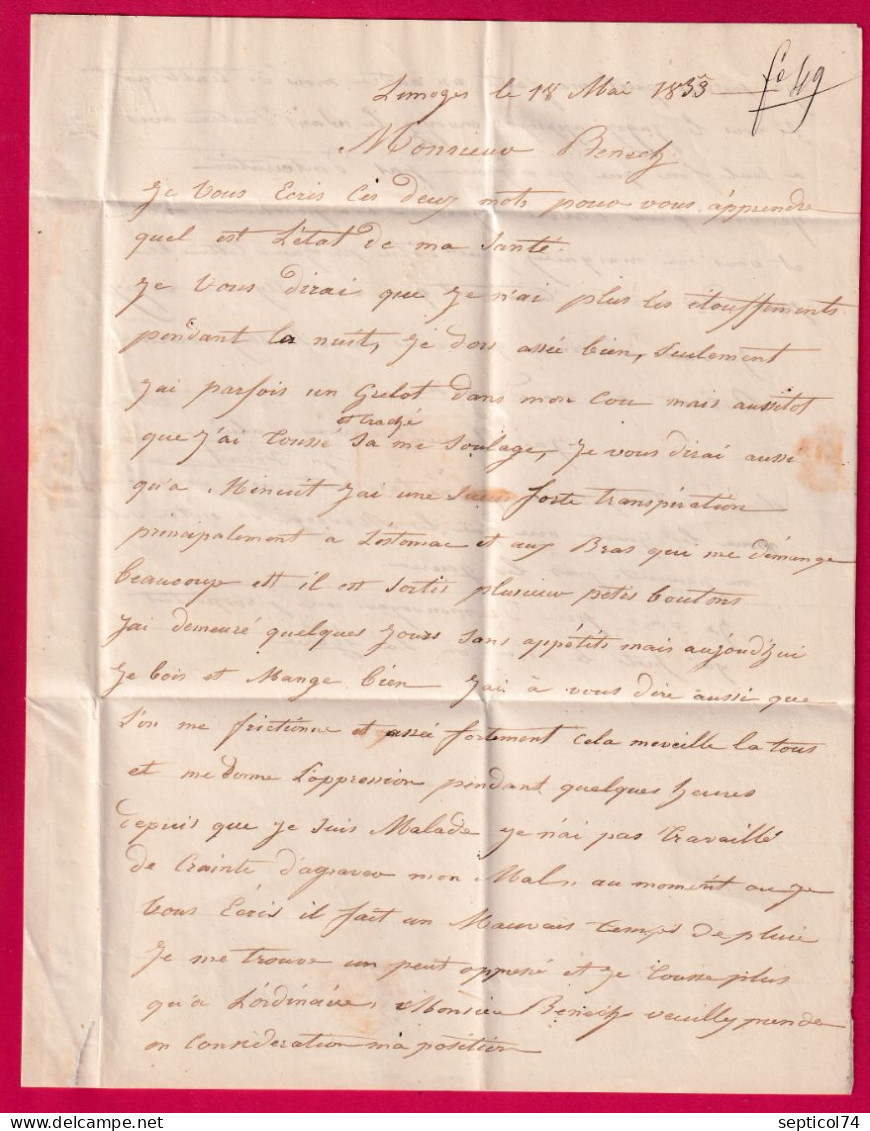 Limoges le 18 Mai 1853
fo 49
Monsieur Benech
Je Vous Ecris Ces deux mots pour vous apprendre
quel est L'état de ma Santé
Je Vous dirai que Je n'ai plus Les étouffements
pendant la nuit, Je dors assée bien, Seulement
J'ai parfois un Grelot dans mon Cou mais aussitot
et Craché
que J'ai Toussé Sa me Soulage, Je vous dirai aussi
qu'a Minuit J'ai une forte transpiration
principalement a L'estomac et aux Bras qui me démange
beaucoup et il est Sortis plusieur petis boutons
J'ai demeuré quelques Jours Sans appétits mais aujourd'hui
Je bois et Mange bien J'ai à vous dire aussi que
L'on me frictionne et assée fortement Cela meveille la tous
et me donne L'oppression pendant quelques heures
depuis que Je Suis Malade Je n'ai pas Travaillé
de Crainte d'agraver mon Mal, au moment ou Je
Vous Écris il fait un Mauvais temps de pluie
Je me trouve un peut oppressé et Je Tousse plus
qu'a L'ordinaire, Monsieur Benech veuillez prendre
en Consideration ma position
septicol74